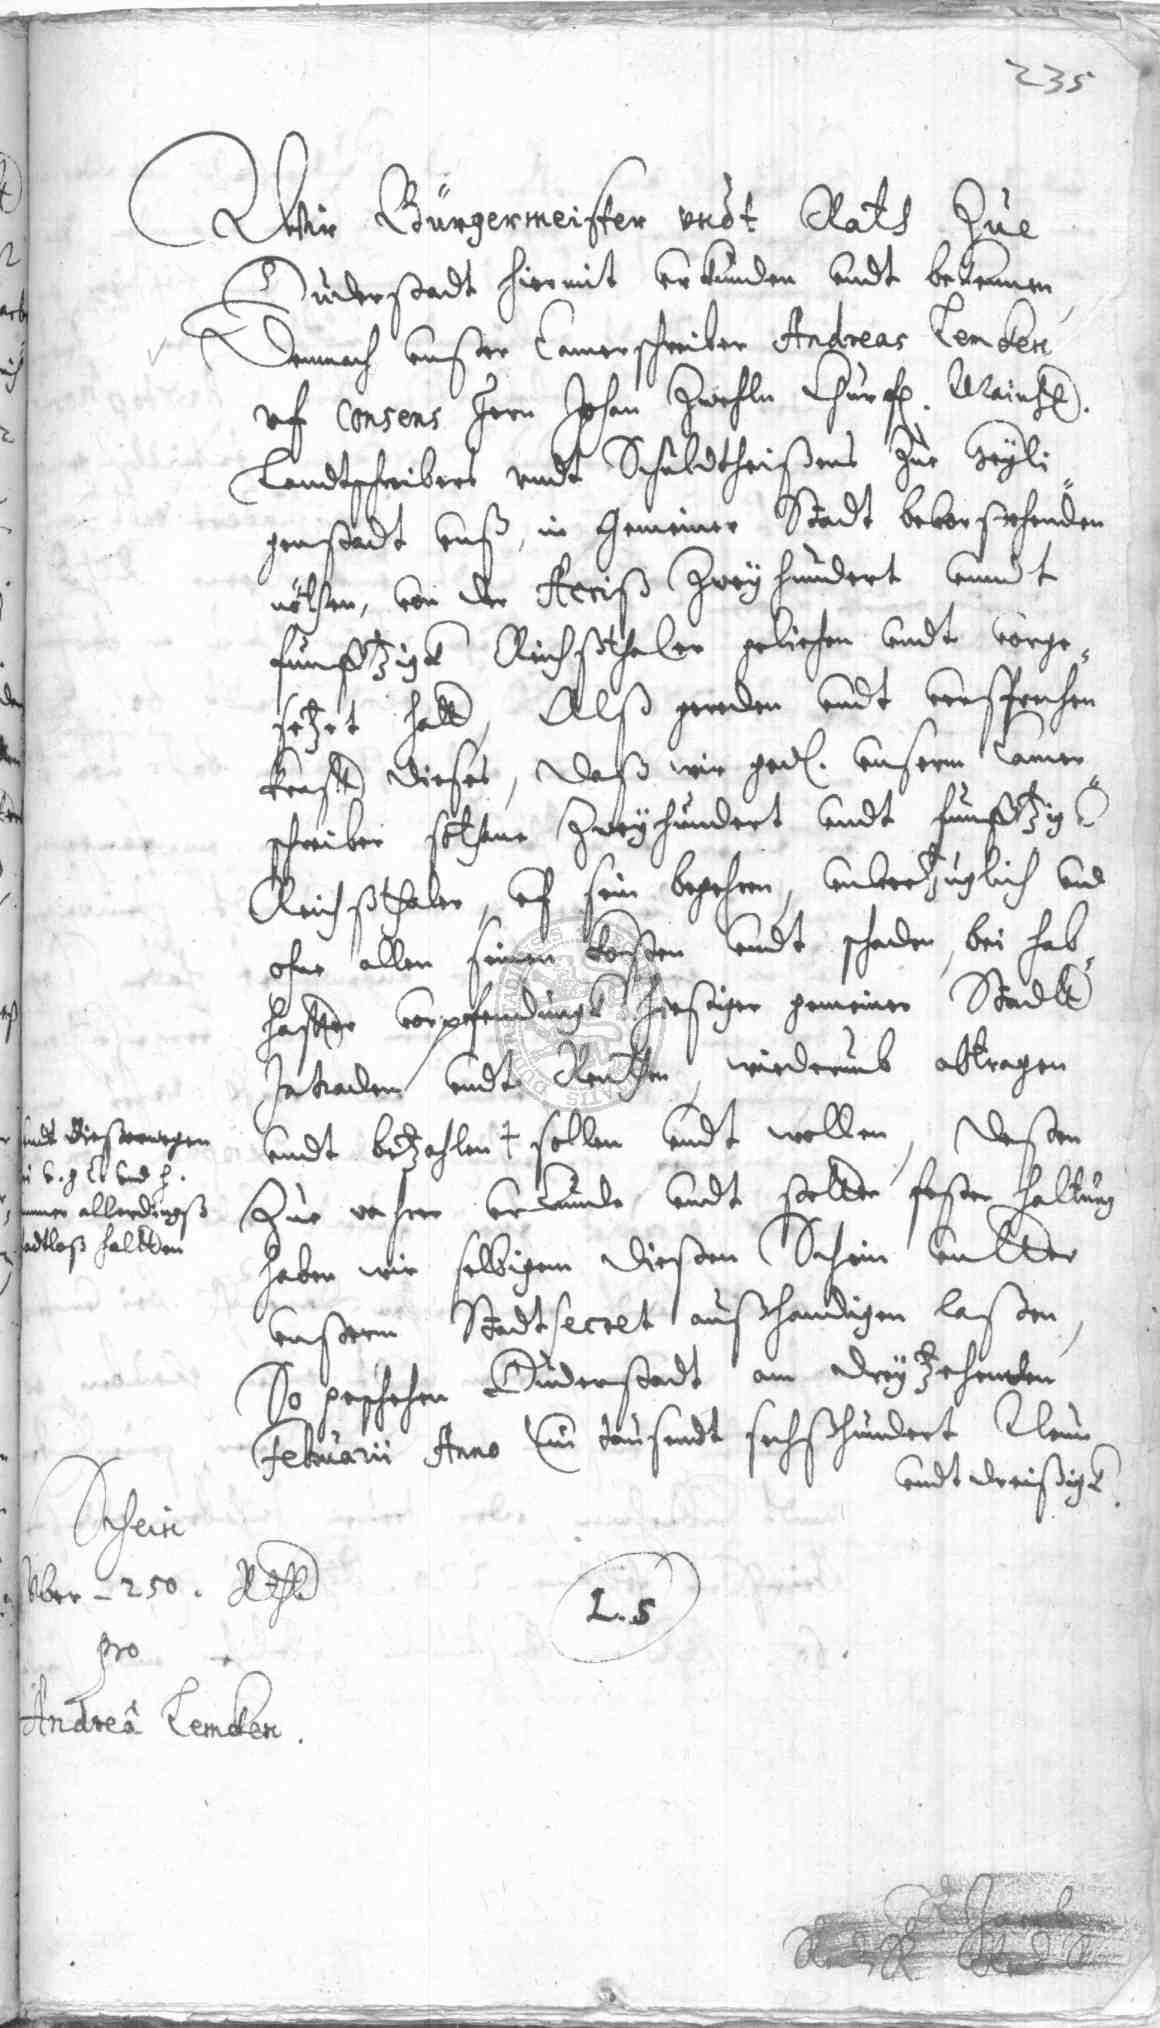 235
Wir Bürgermeister undt Raths Zue
Duderstadt hiermit urkunden undt bekennen,
Demnach unßer Camerschreiber Andreas Lemcken
uf Consens Hern Johan Zwehln Churf. Maintz.
Landtschreibers undt Schuldtheißens zue Heyli
genstadt unß, in gemeiner Stadt bevorstehenden
nöthen, von der Acciß Zweyhundert unndt
funfftzigk Reichßthaler geliehen undt vorge,
setzet hatt, Alß gereden undt versprechen
krafft dieses, daß wir ged. unserm Camer
schreiber sothane Zweyhundert undt funfftzig
Reichßthaler, uf sein begehren, unvertzuglich und
ohne allen seinen kosten undt schaden, bei hab,
haffter vorpfendungk hiesiger gemeiner Stadt
Intraden undt Renthen, wiederumb abtragen
undt betzahlen † sollen undt wollen, Deßen
undt dießerwegen
allerdingß
haltten
Zue wahrer urkunde undt stetter fester haltung
haben wir selbigem dießen Schein untter
unßerm Stadtsecret außhandigen laßen,
So geschehen Duderstadt am dreytzehenden
Februarii Anno Ein tausendt sechßhundert Neun
undt dreißigk.
Schein
uber - 250. Rthl
pro
Andreâ Lemcken.
L. S